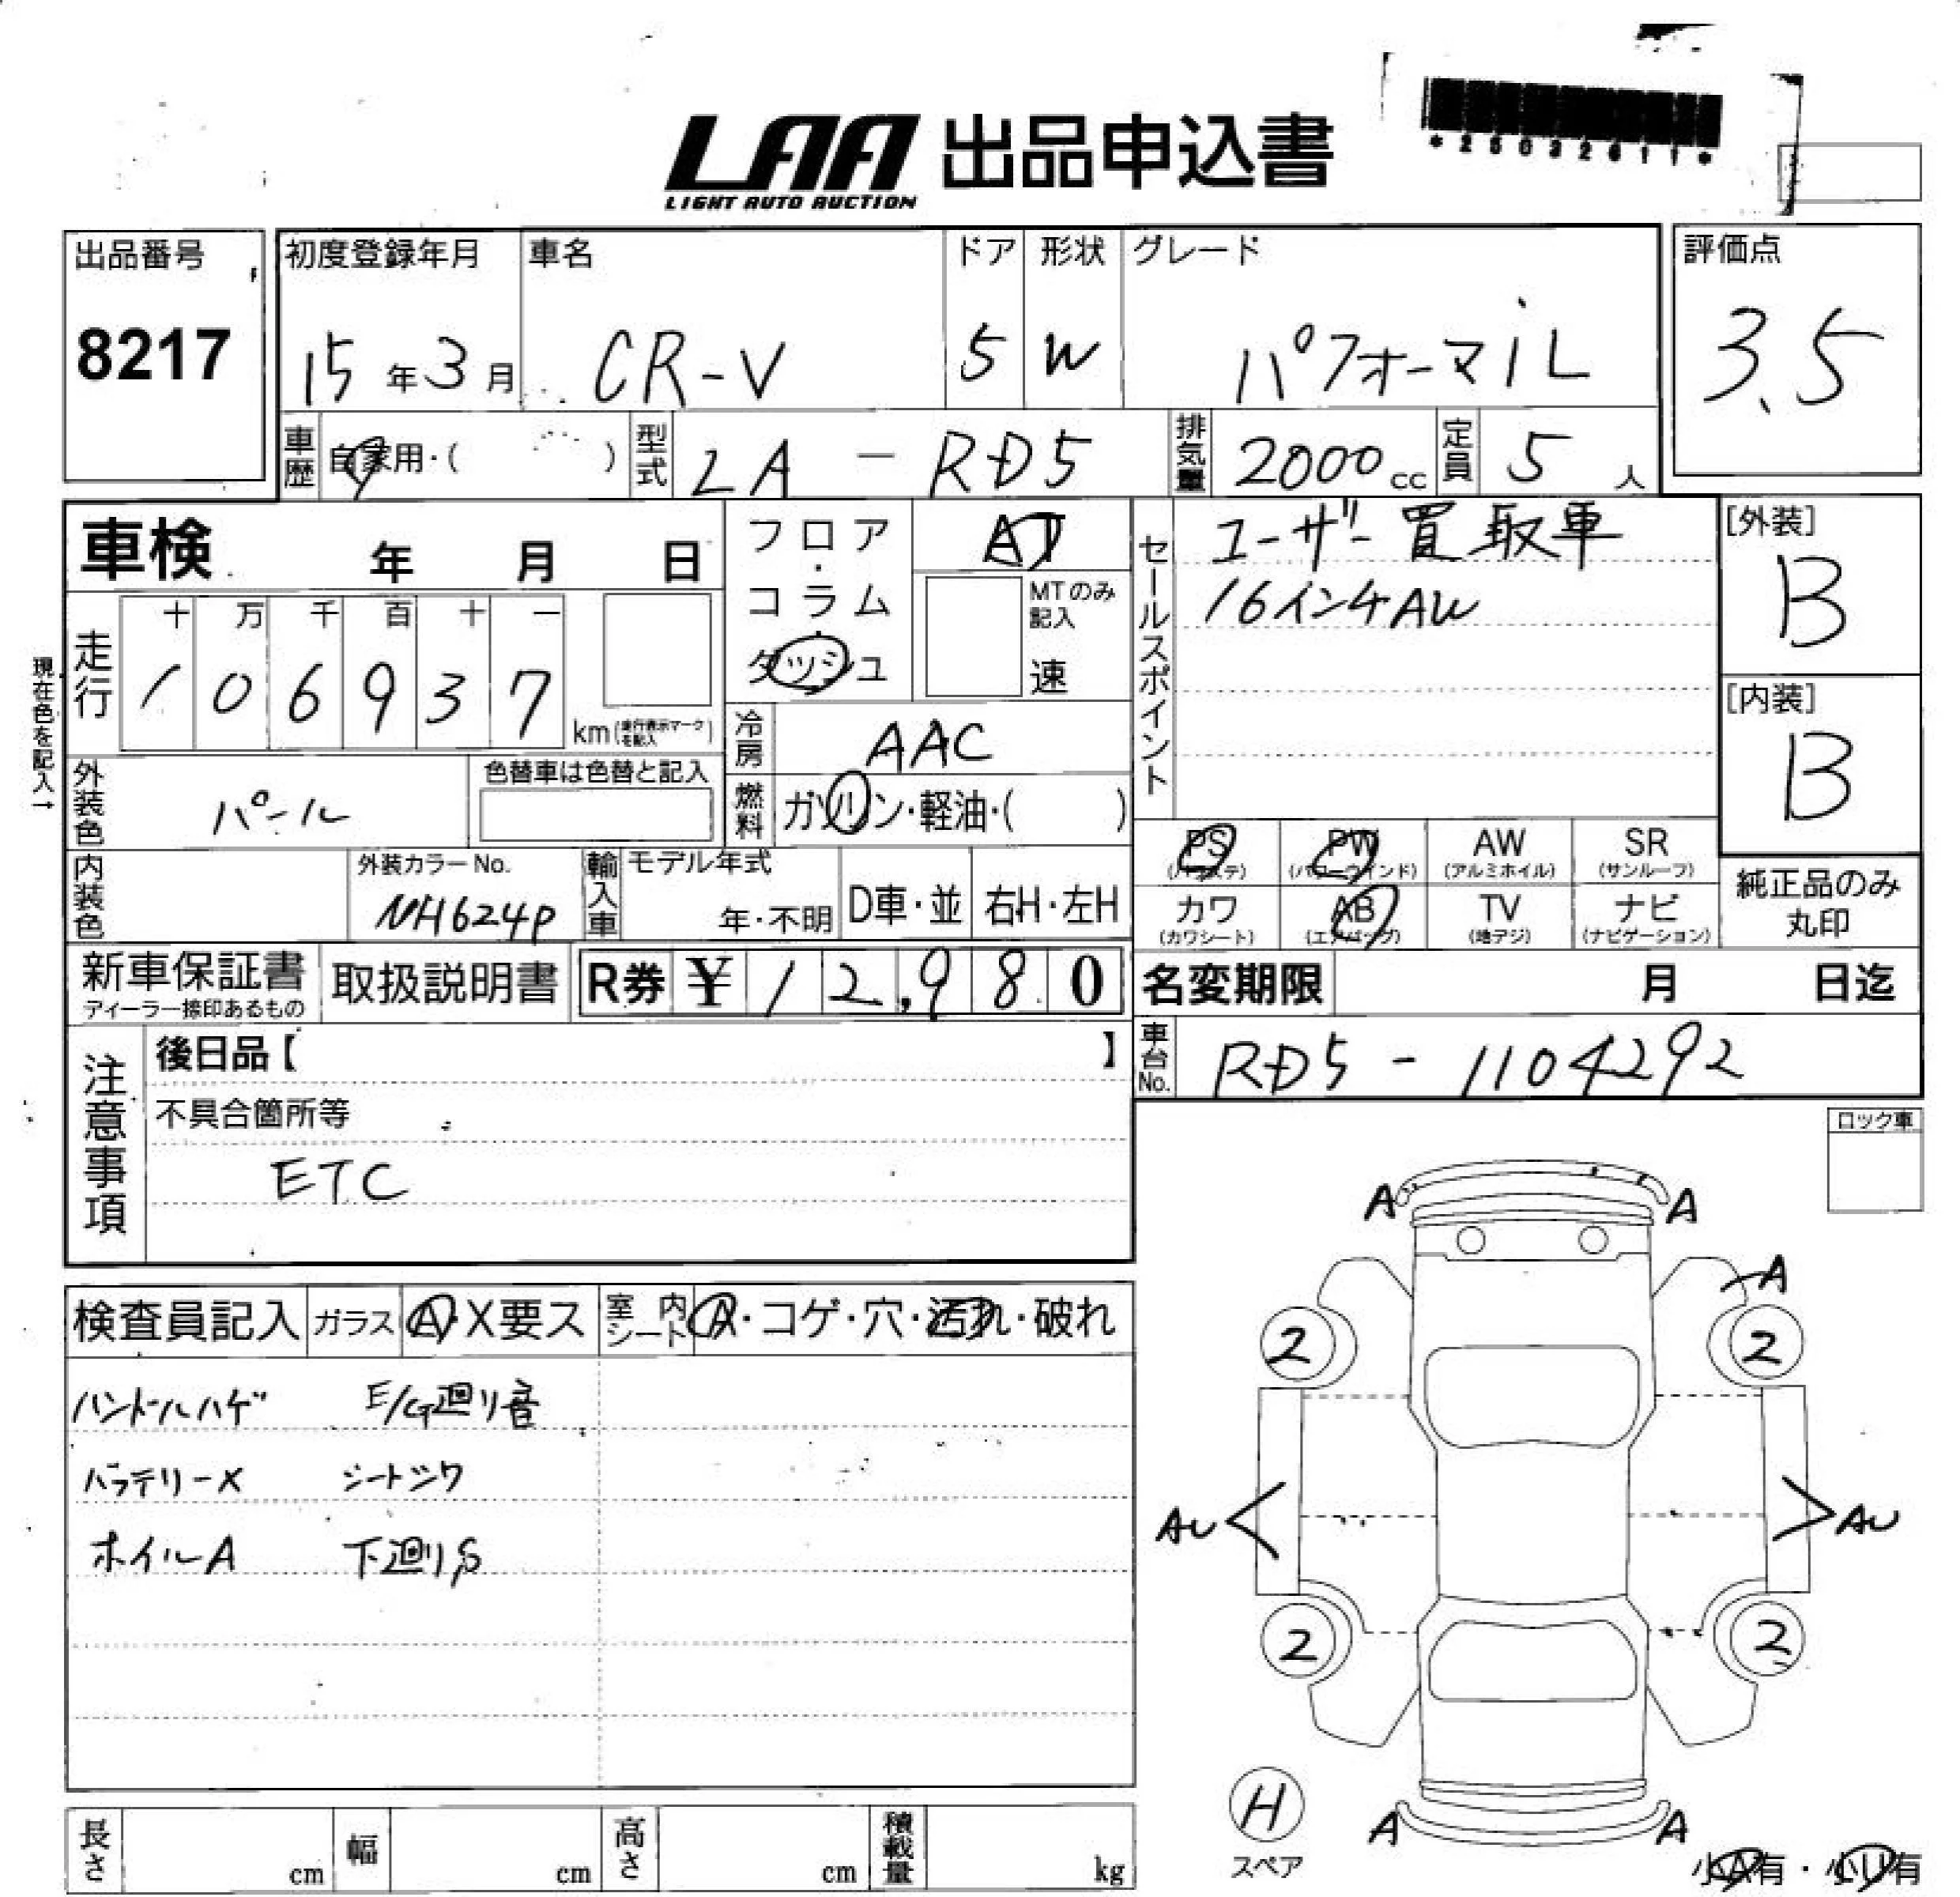 LAA 出品申込書
LIGHT AUTO AUCTION
*25032611*
出品番号
8217
初度登録年月 車名 ドア 形状 グレード
15年3月 CR-V 5 W パフォーマiL
評価点
3.5
車歴 自家用・( ) 型式 LA-RD5 排気量 2000cc 定員 5人
車検 年 月 日
フロア・コラム ダッシュ
AT
MTのみ記入
速
セールスポイント
ユーザー買取車
16インチAW
[外装]
B
[内装]
B
現在色を記入→
走行
十 万 千 百 十 一
1 0 6 9 3 7 km (走行表示マークを記入)
冷房 AAC
外装色 パール 色替車は色替と記入
燃料 ガソリン・軽油・( )
PS AW SR
PW
(パワステ) (パワーウインド) (アルミホイル) (サンルーフ)
カワ AB TV ナビ
(カワシート) (エアバッグ) (地デジ) (ナビゲーション)
純正品のみ
丸印
内装色 外装カラーNo. NH624P
輸入車 モデル年式 年・不明 D車・並 右H・左H
新車保証書
ディーラー捺印あるもの
取扱説明書 R券 ¥12,980
名変期限 月 日迄
車台No. RD5-1104292
注意事項
後日品【 】
不具合箇所等
ETC
ロック車
検査員記入 ガラス A・X要ス 室内シート A・コゲ・穴・汚れ・破れ
ハンドルハゲ E/G廻り音
バッテリーX シートシワ
ホイルA 下廻りS
A A
A
2 2
AU AU
2 2
H
スペア
A A
小A有・小U有
長さ cm 幅 cm 高さ cm 積載量 kg